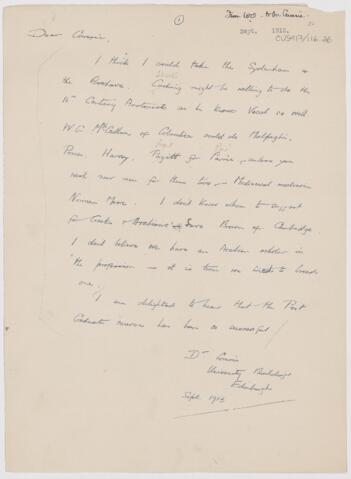 From W.O. to Dr. Comrie.
1
Sept. 1912.
CUS417/116.26
Dear Comrie,
I think I could take the Sydenham &
the Boerhaave. Cushing might be willing to do the
16th Century Anatomists as he knows Vesal so well.
W.G. McCallum of Columbia would do Malpighi.
Power, Harvey. Payne for Paré, unless you
want new men for these two – Mediaeval medicine
Norman Moore. I don't know whom to suggest
for Greeks & Arabians save Brown of Cambridge.
I don't believe we have an Arabian scholar in
the profession – it is time we tried to breed
one.
I am delighted to hear that the Post
Graduate course has been so successful
Dr Comrie
University Buildings
Edinburgh
Sept. 1912